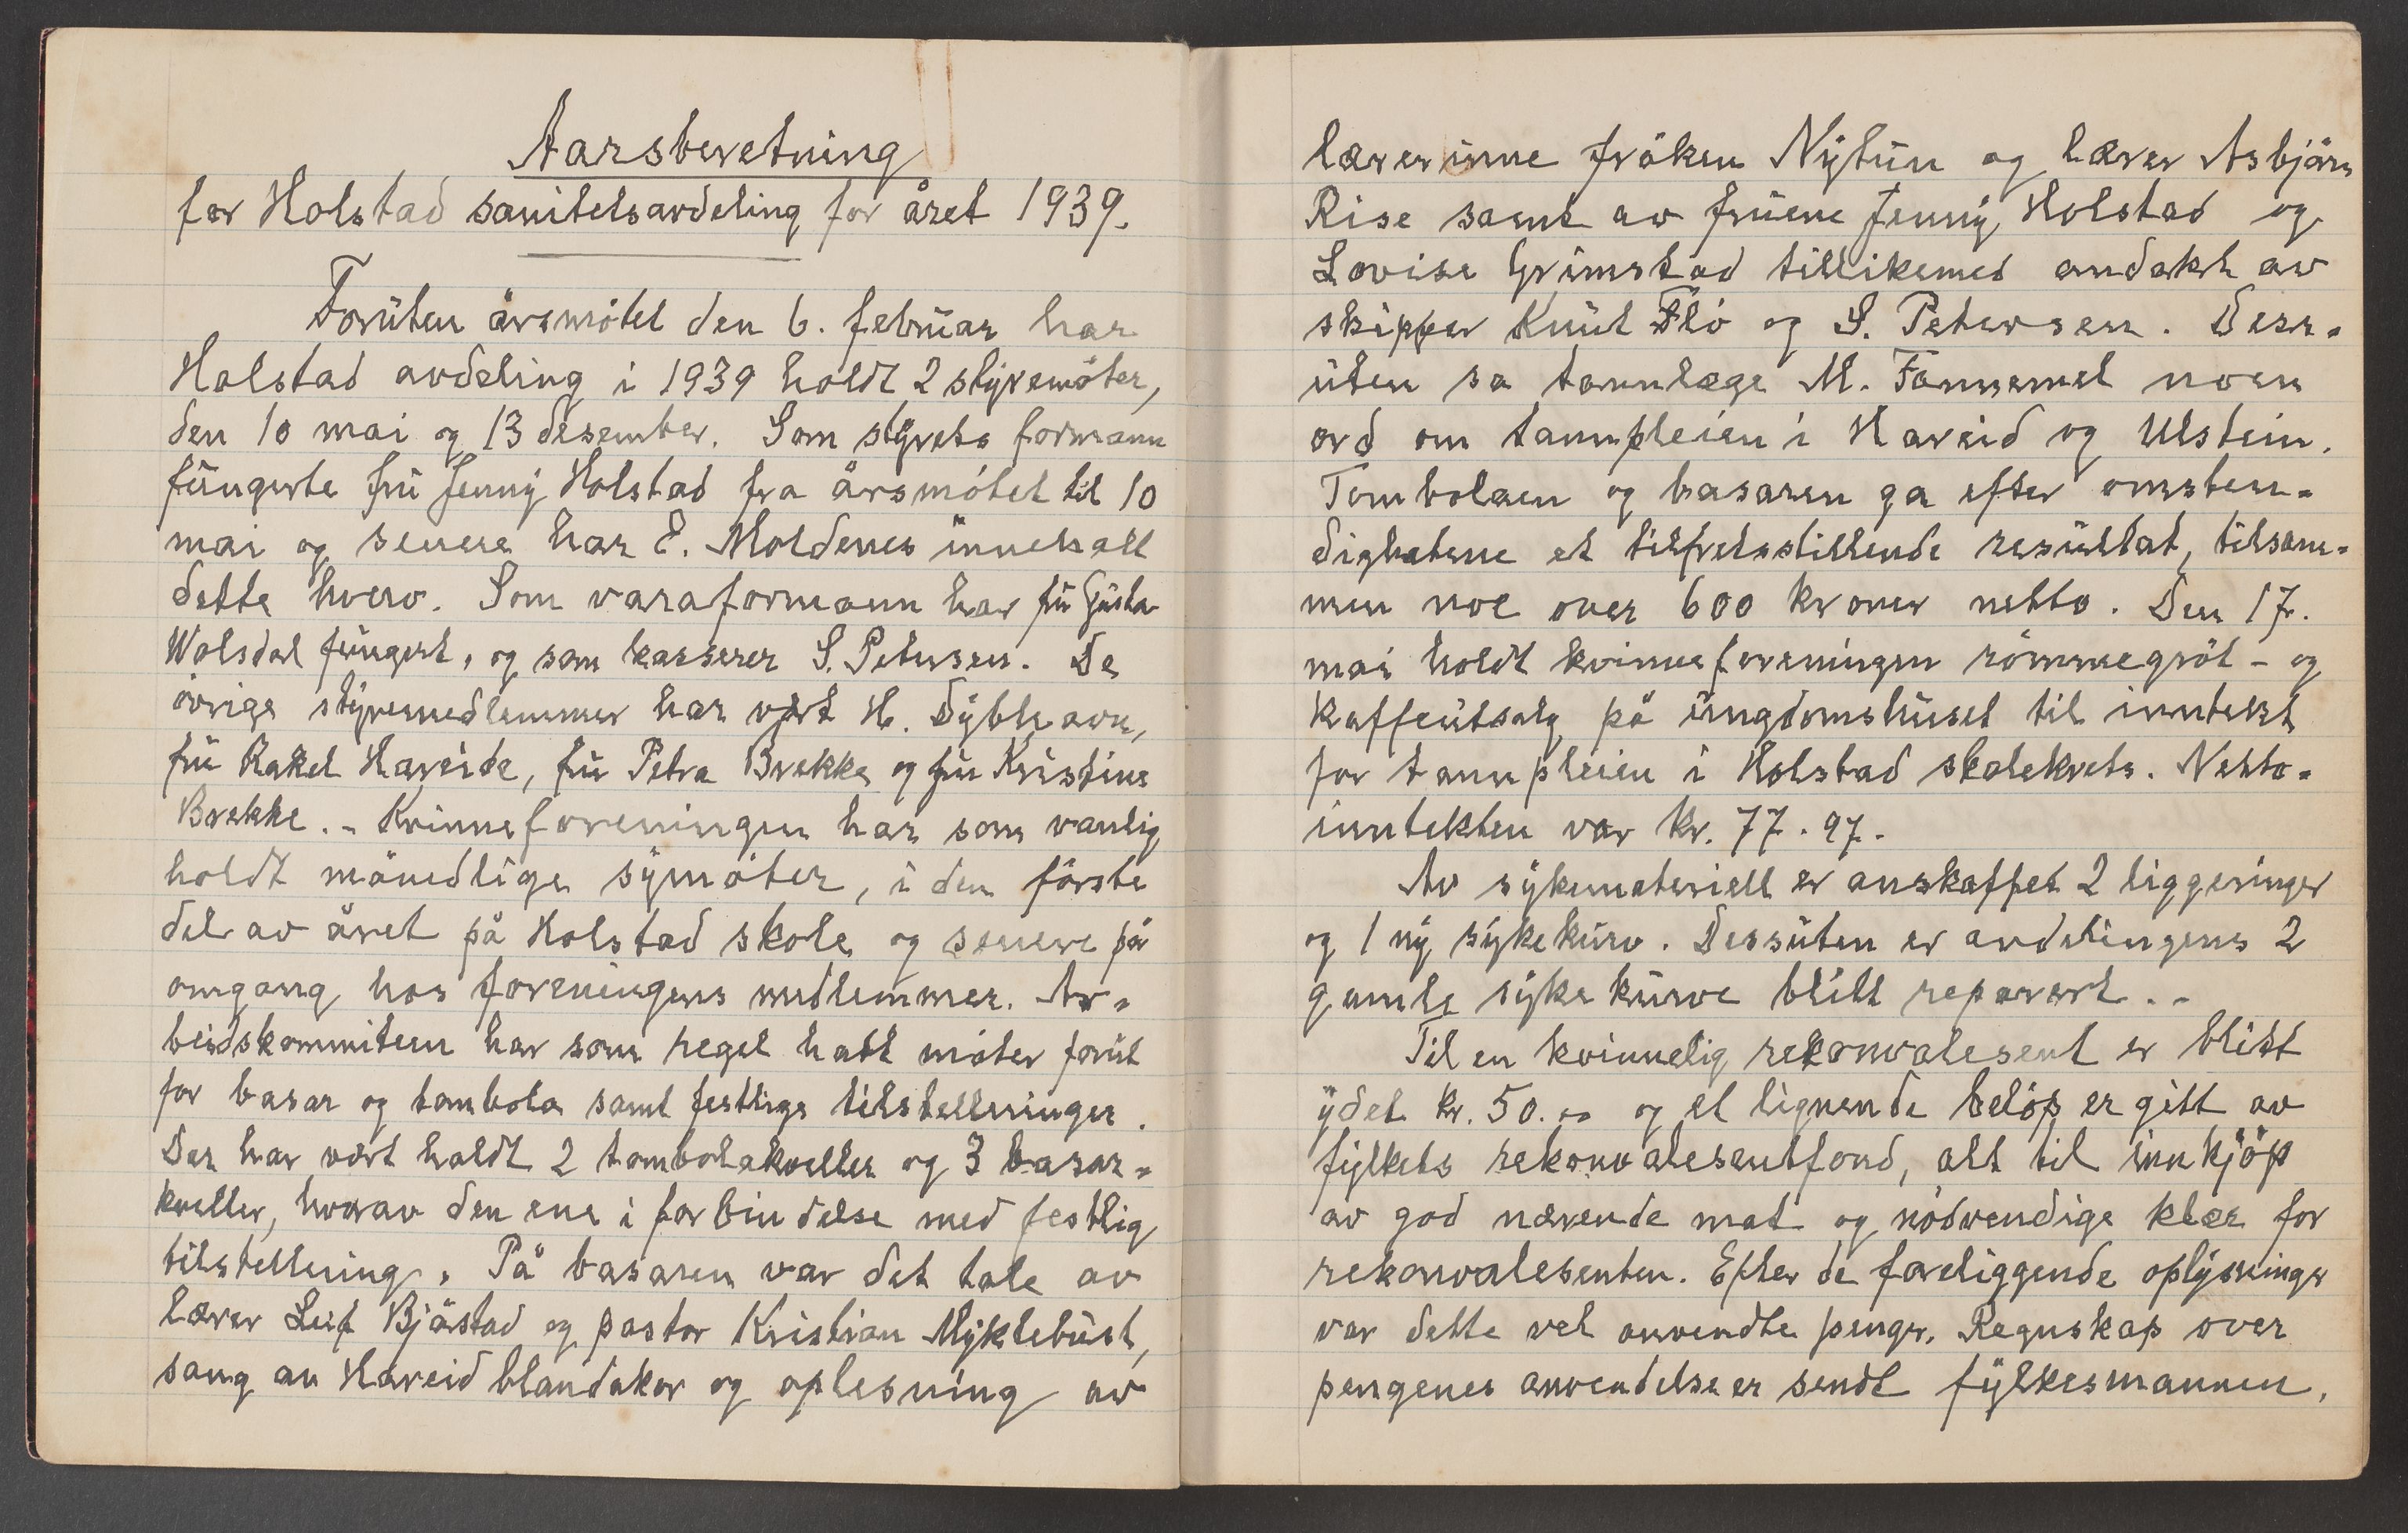 Aarsberetning
for Holstad sanitetsavdeling for året 1939.
Foruten årsmötet den 6. februar har
Holstad avdeling i 1939 holdt 2 styremöter,
den 10 mai og 13 desember. Som styrets formann
fungerte fru Jenny Holstad fra årsmötet til 10
mai og senere har E. Moldenes innehatt
dette hverv. Som varaformann har fru Gusta
Wolsdal fungert, og som kasserer S. Petersen. De
övrige styremedlemmer har vært H. Dybhavn,
fru Rakel Hareide, fru Petra Brekke og fru Kristine
Brekke. - Kvinneforeningen har som vanlig
holdt månedlige symöter, i den förste
del av året på Holstad skole og senere på
omgang hos foreningens medlemmer. Ar=
beidskommiteen har som regel hatt möter forut
for basar og tombola samt festlige tilstellninger.
Der har vært holdt 2 tombolakvelder og 3 basar=
kveller, hvorav den ene i forbindelse med festlig
tilstellning. På basaren var det tale av
lærer Leif Bjåstad og pastor Kristian Myklebust,
sang av Hareid blandakor og oplesning av
lærerinne fröken Nytun og lærer Asbjörn
Rise samt av fruene Jenny Holstad og
Lovise Grimstad tillikemed andakt av
skipper Knut Flö og S. Petersen. Dess=
uten sa tannlæge M. Fannemel noen
ord om tannpleien i Hareid og Ulstein.
Tombolaen og basaren ga efter omsten=
dighetene et tilfretsstillende resultat, tilsam=
men noe over 600 kroner netto. Den 17.
mai holdt kvinneforeningen römmegröt - og
kaffeutsalg på ungdomshuset til inntekt
for tannpleien i Holstad skolekrets. Netto=
inntekten var kr. 77.97.
Av sykemateriell er anskaffet 2 liggeringer
og 1 ny sykekurv. Dessuten er avdelingens 2
gamle sykekurve blitt reparert. -
Til en kvinnelig rekonvalesent er blitt
ydet kr. 50.00 og et lignende belöp er gitt av
fylkets rekonvalesentfond, alt til innkjöp
av god nærende mat og nödvendige klær for
rekonvalesenten. Efter de foreliggende oplysninger
var dette vel anvendte penger. Regnskap over
pengenes anvendelse er sendt fylkesmannen.